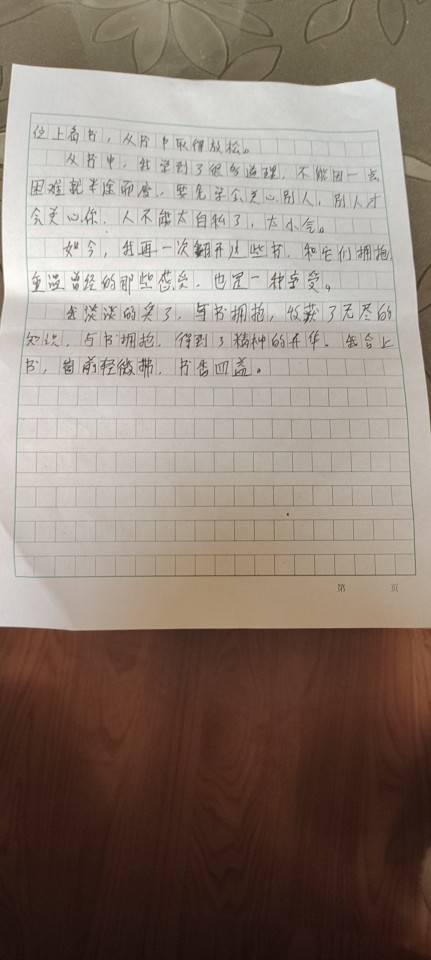 位上看书，从书中取得放松。
从书中，我学到了很多道理，不能因一点
困难就半途而废，要先学会关心别人，别人才
会关心你，人不能太自私了，太小气。
如今，我再一次翻开这些书，和它们拥抱，
重温曾经的那些感受，也是一种享受。
我淡淡的笑了，与书拥抱，收获了无尽的
知识，与书拥抱，得到了精神的升华。我合上
书，面前轻微拂，书香四溢。
第 页